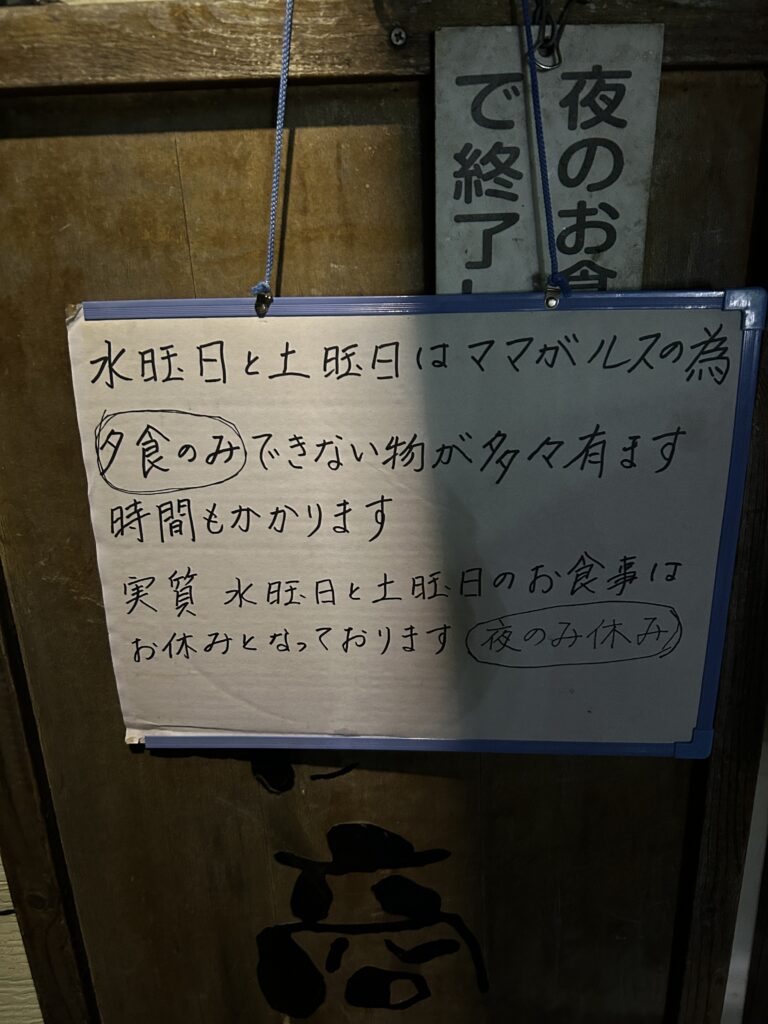 夜のお食
で終了し
水旺日と土旺日はママがルスの為
夕食のみできない物が多々有ます
時間もかかります
実質 水旺日と土旺日のお食事は
お休みとなっております 夜のみ休み